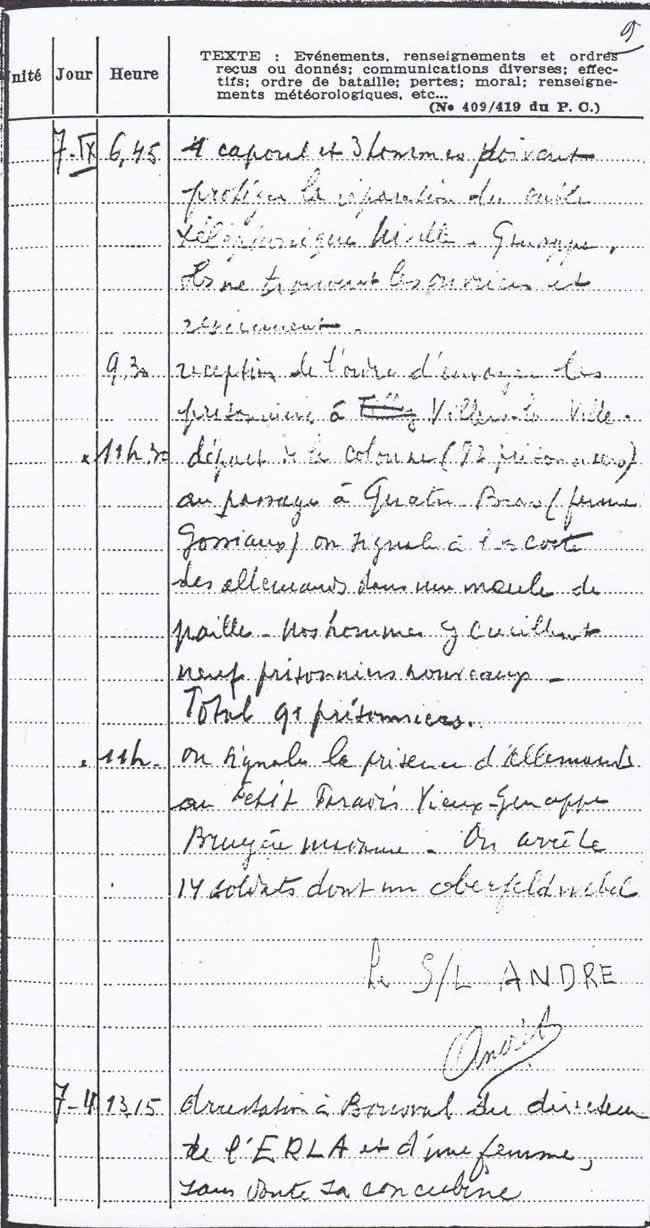 9
TEXTE : Evénements, renseignements et ordres
reçus ou donnés; communications diverses; effec-
tifs; ordre de bataille; pertes; moral; renseigne-
ments météorologiques, etc...
(No 409/419 du P. C.)
nité Jour Heure
7-IX 6,45 1 caporal et 3 hommes doivent
protéger la réparation du cable
téléphonique Nivelle - Genappe.
Ils ne trouvent les ouvriers et
reviennent -
9,30 réception de l'ordre d'envoyer les
prisonniers à Tilly Villers-la-Ville.
11h 30 départ de la colonne (82 prisonniers)
au passage à Quatre Bras (ferme
Gossiaux) on signale à les coté
des allemands dans une meule de
paille - nos hommes y cueillent
neuf prisonniers nouveaux -
Total 91 prisonniers.
11h - on signale la présence d'allemands
au Petit Paradis Vieux-Genappe
Bruyère madame - On arrête
14 soldats dont un oberfeldwebel
Le S/L ANDRE
André
7- 13,15 arrestation à Bousval du directeur
de l'ERLA et d'une femme,
sans doute sa concubine